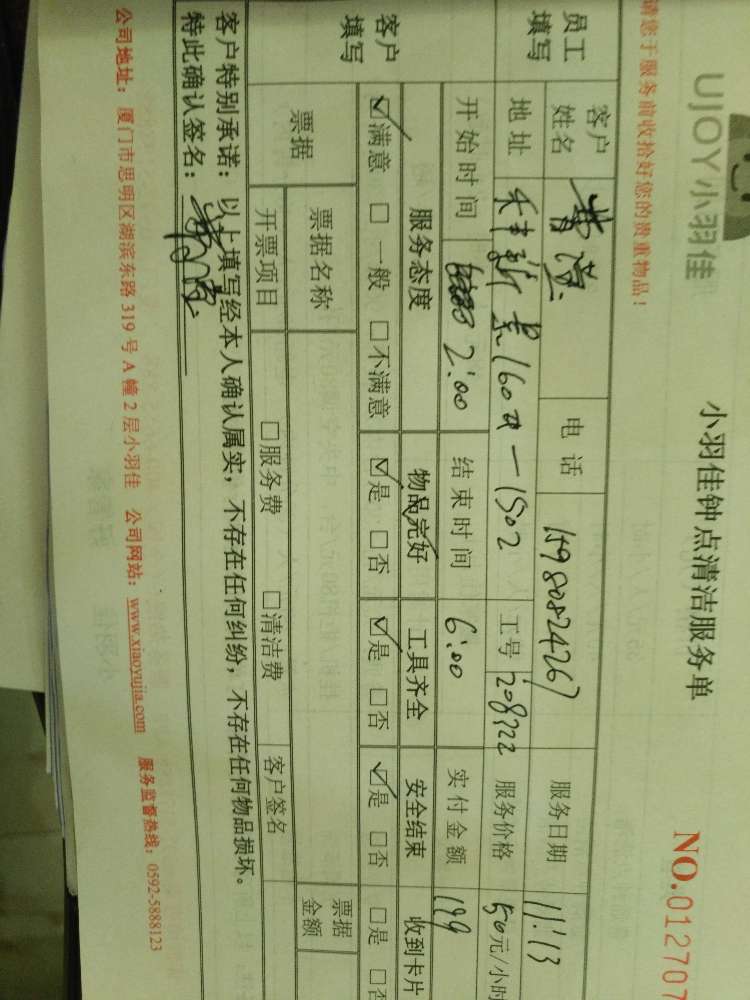 UJOY小羽佳
小羽佳钟点清洁服务单
NO.012707
请您于服务前收拾好您的贵重物品！
员工填写
客户姓名 电话 15980824267 服务日期 11:13
地址 160 — 1502 工号 208722 服务价格 50元/小时
开始时间 2:00 结束时间 6:00 实付金额 199
客户填写
服务态度 物品完好 工具齐全 安全结束 收到卡片
☑满意 □一般 □不满意 ☑是 □否 ☑是 □否 ☑是 □否 □是 □否
票据 票据名称 票据金额
开票项目 □服务费 □清洁费 客户签名
客户特别承诺：以上填写经本人确认属实，不存在任何纠纷，不存在任何物品损坏。
特此确认签名：
公司地址：厦门市思明区湖滨东路319号A幢2层小羽佳 公司网站：www.xiaoyujia.com 服务监督热线：0592-5888123